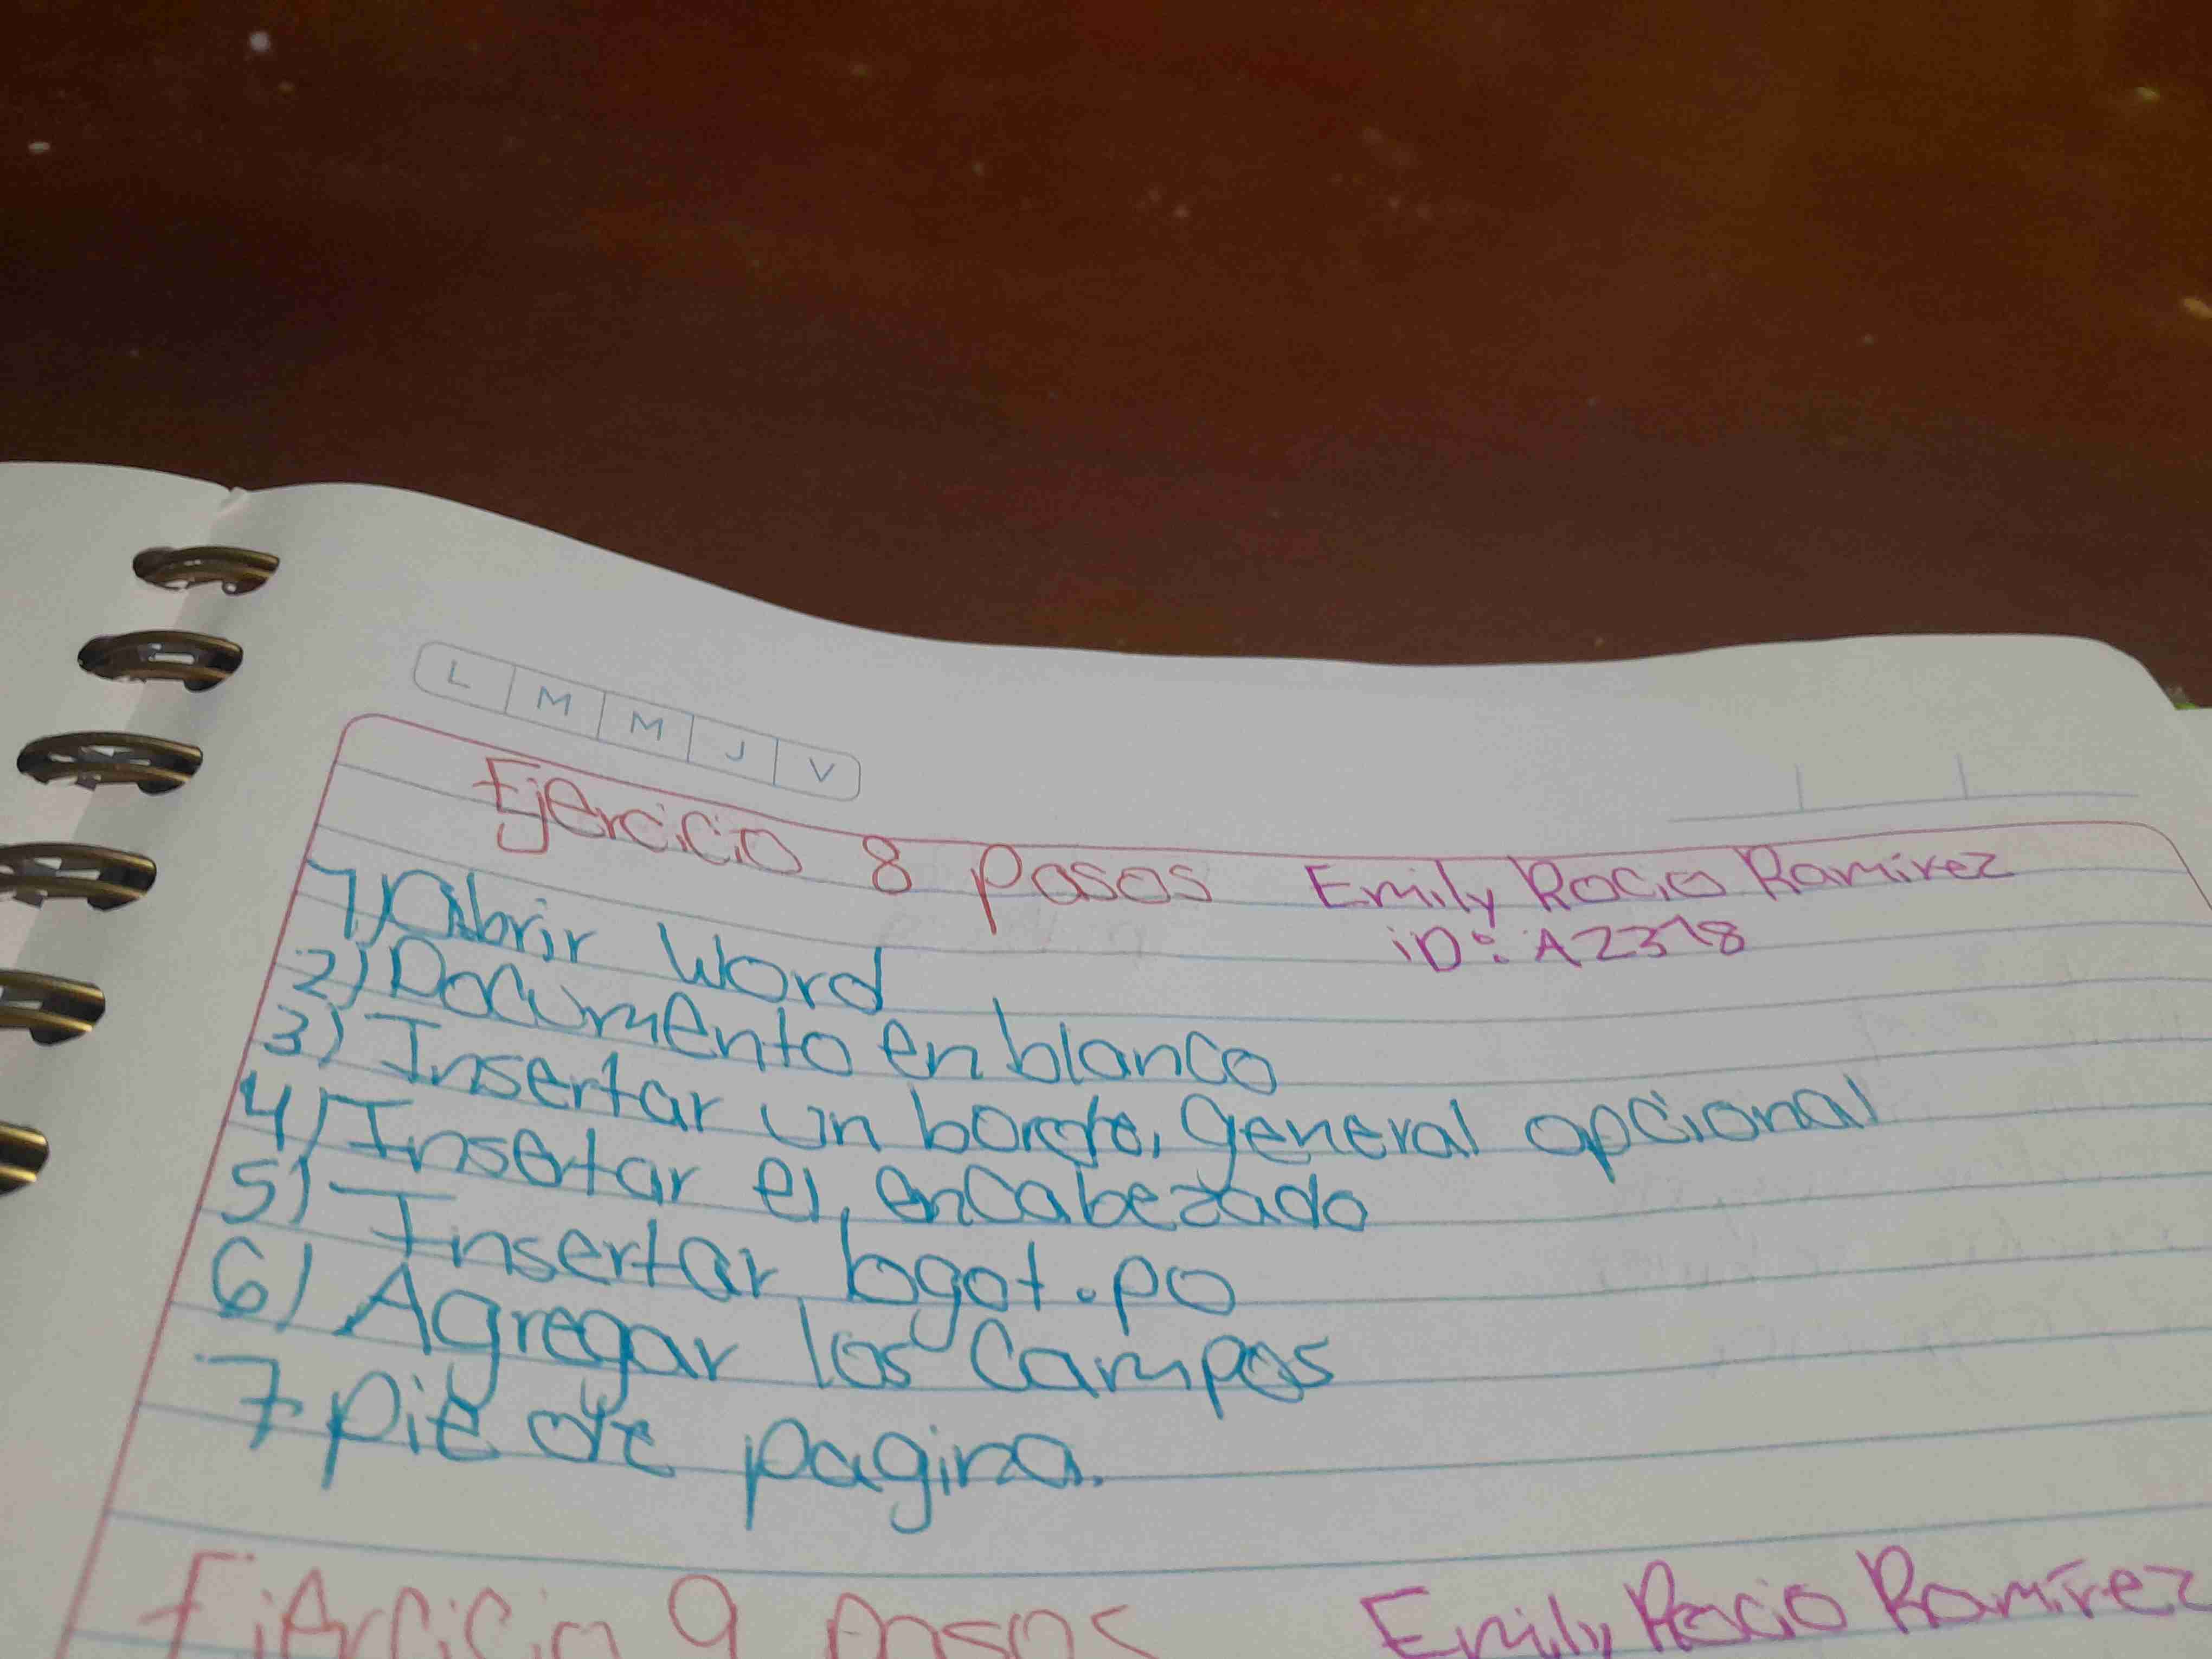 L M M J V
Ejercicio 8 pasos Emily Rocio Ramirez
iD: A2318
1) Abrir Word
2) Documento en blanco
3) Insertar un borde, general opcional
4) Insertar el encabezado
5) Insertar logot.po
6) Agregar los campos
7 pie de pagina.
Ejercicio 9 pasos Emily Rocio Ramirez